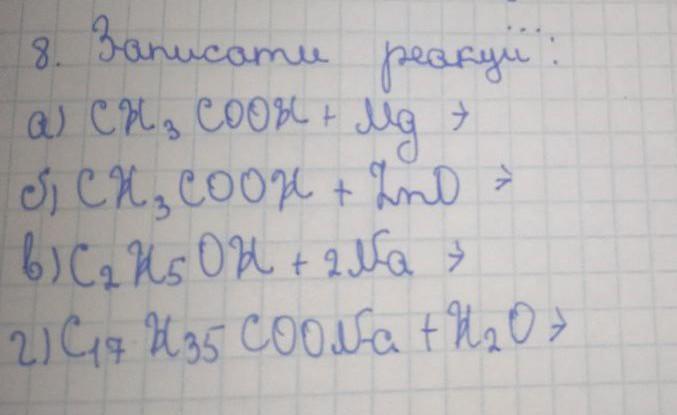 8. Записати реакції:
а) CH₃COOH + Mg →
б) CH₃COOH + ZnO →
в) C₂H₅OH + 2Na →
г) C₁₇H₃₅COONa + H₂O →